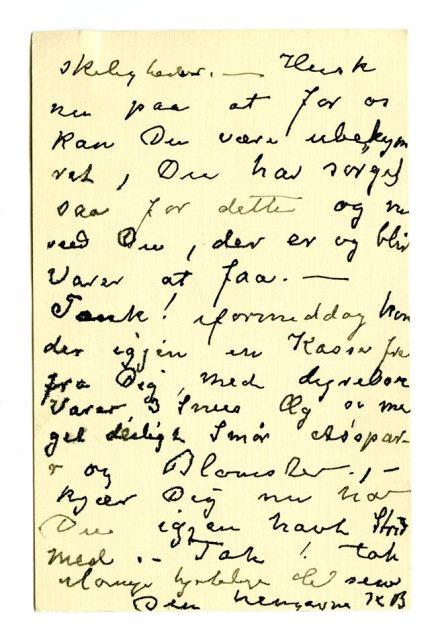 skeligheder. — Husk
nu paa at for os
kan Du være ubekym
ret, Du har sørget
saa for dette og nu
veed Du, der er og blir
Varer at faa. —
Tænk! iformiddag kom
der igjen en Kasse fra
fra Dig, med dyrebare
Varer, 3 Snes Æg og me
get deiligt Smør Aspar-
r og Blomster. , —
kjær Dig nu har
Du igjen havt Strid
med . – Tak! tak
Mange hjertelige
Din hengivne